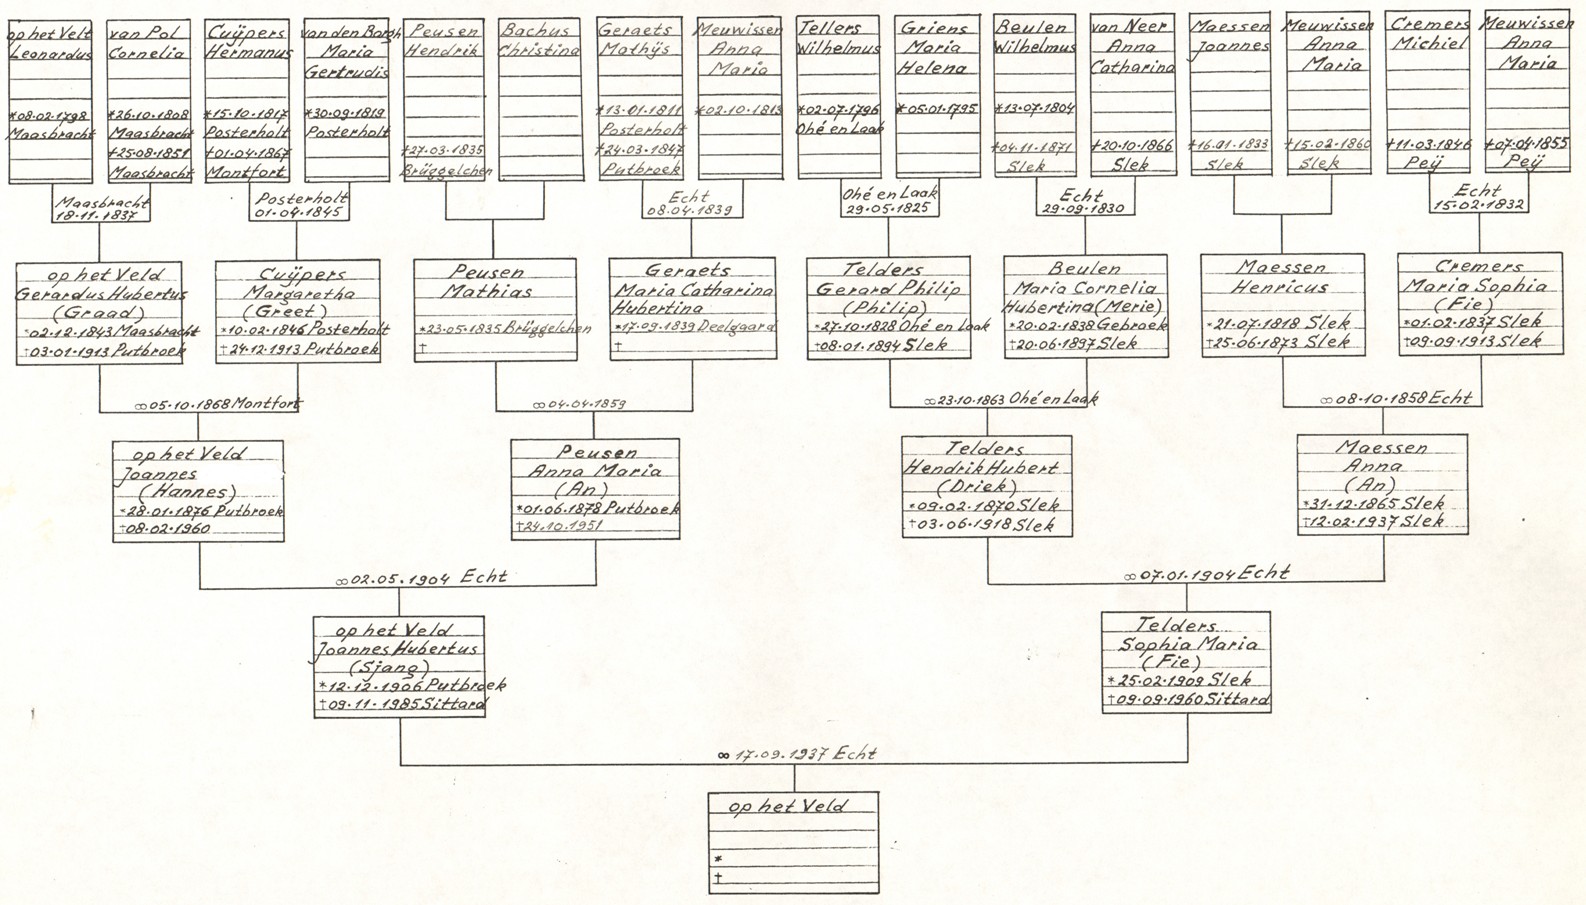 op het Velt
Leonardus
*08·02·1798
Maasbracht
van Pol
Cornelia
*26·10·1808
Maasbracht
†25·08·1851
Maasbracht
Maasbracht
18·11·1837
Cuÿpers
Hermanus
*15·10·1817
Posterholt
†01·04·1867
Montfort
van den Borgh
Maria
Gertrudis
*30·09·1819
Posterholt
Posterholt
01·04·1845
Peusen
Hendrik
†27·03·1835
Brüggelchen
Bachus
Christina
Geraets
Mathÿs
*13·01·1811
Posterholt
†24·03·1847
Putbroek
Meuwissen
Anna
Maria
*02·10·1813
Echt
08·04·1839
Tellers
Wilhelmus
*02·07·1796
Ohé en Laak
Griens
Maria
Helena
*05·01·1795
Ohé en Laak
29·05·1825
Beulen
Wilhelmus
*13·07·1804
†04·11·1871
Slek
van Neer
Anna
Catharina
†20·10·1866
Slek
Echt
29·09·1830
Maessen
Joannes
†16·01·1833
Slek
Meuwissen
Anna
Maria
†15·02·1860
Slek
Cremers
Michiel
†11·03·1846
Peÿ
Meuwissen
Anna
Maria
†07·04·1855
Peÿ
Echt
15·02·1832
op het Veld
Gerardus Hubertus
(Graad)
*02·12·1843 Maasbracht
†03·01·1913 Putbroek
Cuÿpers
Margaretha
(Greet)
*10·02·1846 Posterholt
†24·12·1913 Putbroek
Peusen
Mathias
*23·05·1835 Brüggelchen
†
Geraets
Maria Catharina
Hubertina
*17·09·1839 Deelgaard
†
Telders
Gerard Philip
(Philip)
*27·10·1828 Ohé en Laak
†08·01·1894 Slek
Beulen
Maria Cornelia
Hubertina (Merie)
*20·02·1838 Gebroek
†20·06·1897 Slek
Maessen
Henricus
*21·07·1818 Slek
†25·06·1873 Slek
Cremers
Maria Sophia
(Fie)
*01·02·1837 Slek
†09·09·1913 Slek
∞05·10·1868 Montfort
∞04·04·1859
∞23·10·1863 Ohé en Laak
∞08·10·1858 Echt
op het Veld
Joannes
(Hannes)
*28·01·1876 Putbroek
†08·02·1960
Peusen
Anna Maria
(An)
*01·06·1878 Putbroek
†24·10·1951
Telders
Hendrik Hubert
(Driek)
*09·02·1870 Slek
†03·06·1918 Slek
Maessen
Anna
(An)
*31·12·1865 Slek
†12·02·1937 Slek
∞02·05·1904 Echt
∞07·01·1904 Echt
op het Veld
Joannes Hubertus
(Sjang)
*12·12·1906 Putbroek
†09·11·1985 Sittard
Telders
Sophia Maria
(Fie)
*25·02·1909 Slek
†09·09·1960 Sittard
∞ 17·09·1937 Echt
op het Veld
*
†